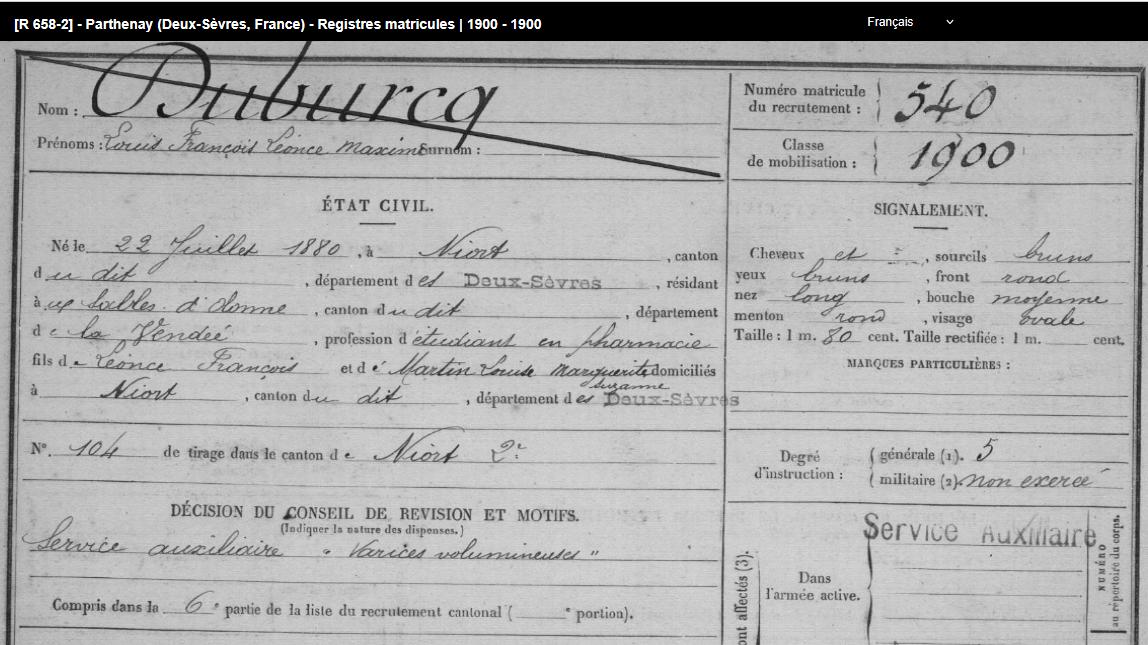 [R 658-2] - Parthenay (Deux-Sèvres, France) - Registres matricules | 1900 - 1900
Français
Nom : Duburcq
Prénoms : Louis François Léonce Maxime Surnom :
Numéro matricule
du recrutement : 540
Classe
de mobilisation : 1900
ÉTAT CIVIL.
Né le 22 Juillet 1880, à Niort, canton
du dit, département des Deux-Sèvres, résidant
à ux Sables d'Olonne, canton du dit, département
de la Vendée, profession d'étudiant en pharmacie
fils de Léonce François et dé Martin Louise Marguerite domiciliés
Suzanne
à Niort, canton du dit, département des Deux-Sèvres
N° 104 de tirage dans le canton de Niort 2e
DÉCISION DU CONSEIL DE REVISION ET MOTIFS.
(Indiquer la nature des dispenses.)
Service auxiliaire " Varices volumineuses "
Compris dans la 6e partie de la liste du recrutement cantonal ( e portion).
SIGNALEMENT.
Cheveux et, sourcils bruns
yeux bruns, front rond
nez long, bouche moyenne
menton rond, visage ovale
Taille : 1 m. 80 cent. Taille rectifiée : 1 m. cent.
MARQUES PARTICULIÈRES :
Degré
d'instruction :
générale (1). 5
militaire (2). non exercé
Service Auxiliaire
Dans
l'armée active.
ont affectés (3).
NUMÉRO
au répertoire du corps.